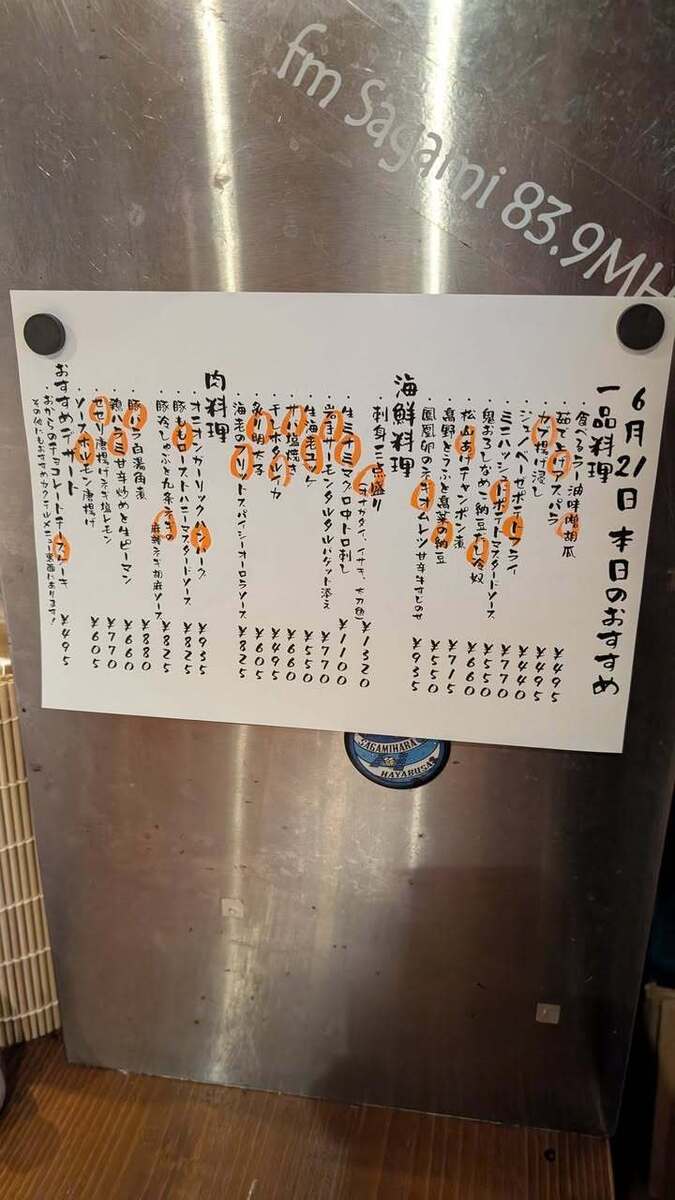 fm Sagami 83.9MH
6月21日 本日のおすすめ
一品料理
・食べるラー油味噌胡瓜 ¥495
・茹でたてアスパラ ¥495
揚げ浸し ¥440
・ジェノベーゼポテトフライ ¥770
・ミニハッシュドポテトマスタードソース ¥550
・鬼おろしなめこ納豆だし冷奴 ¥660
・松山あげチャンポン煮 ¥715
・高野とうふと高菜の納豆 ¥550
・鳳凰卵のネギオムレツ甘辛牛すじのせ ¥935
海鮮料理
・刺身三点盛り イサキ、太刀魚) ¥1320
・生ミナミマグロ中トロ刺し ¥1100
・岩手サーモンタルタルバケット添え ¥770
・生海老ユッケ ¥550
塩焼き ¥660
・干しホタルイカ ¥495
・炙り明太子 ¥605
・海老のフリットスパイシーオーロラソース ¥825
肉料理
・オニオンガーリックハンバーグ ¥935
・豚ももローストハニーマスタードソース ¥825
・豚冷しゃぶと九条ネギの 胡麻ソース ¥825
・豚バラ白湯角煮 ¥880
・鶏ハラミ甘辛炒めと生ピーマン ¥660
・せせり唐揚げネギ塩レモン ¥770
・ソースホルモン唐揚げ ¥605
おすすめデザート
・おからのチョコレートチーズケーキ ¥495
その他にもおすすめカクテルメニュー裏面にあります!
SAGAMIHARA
HAYABUSA